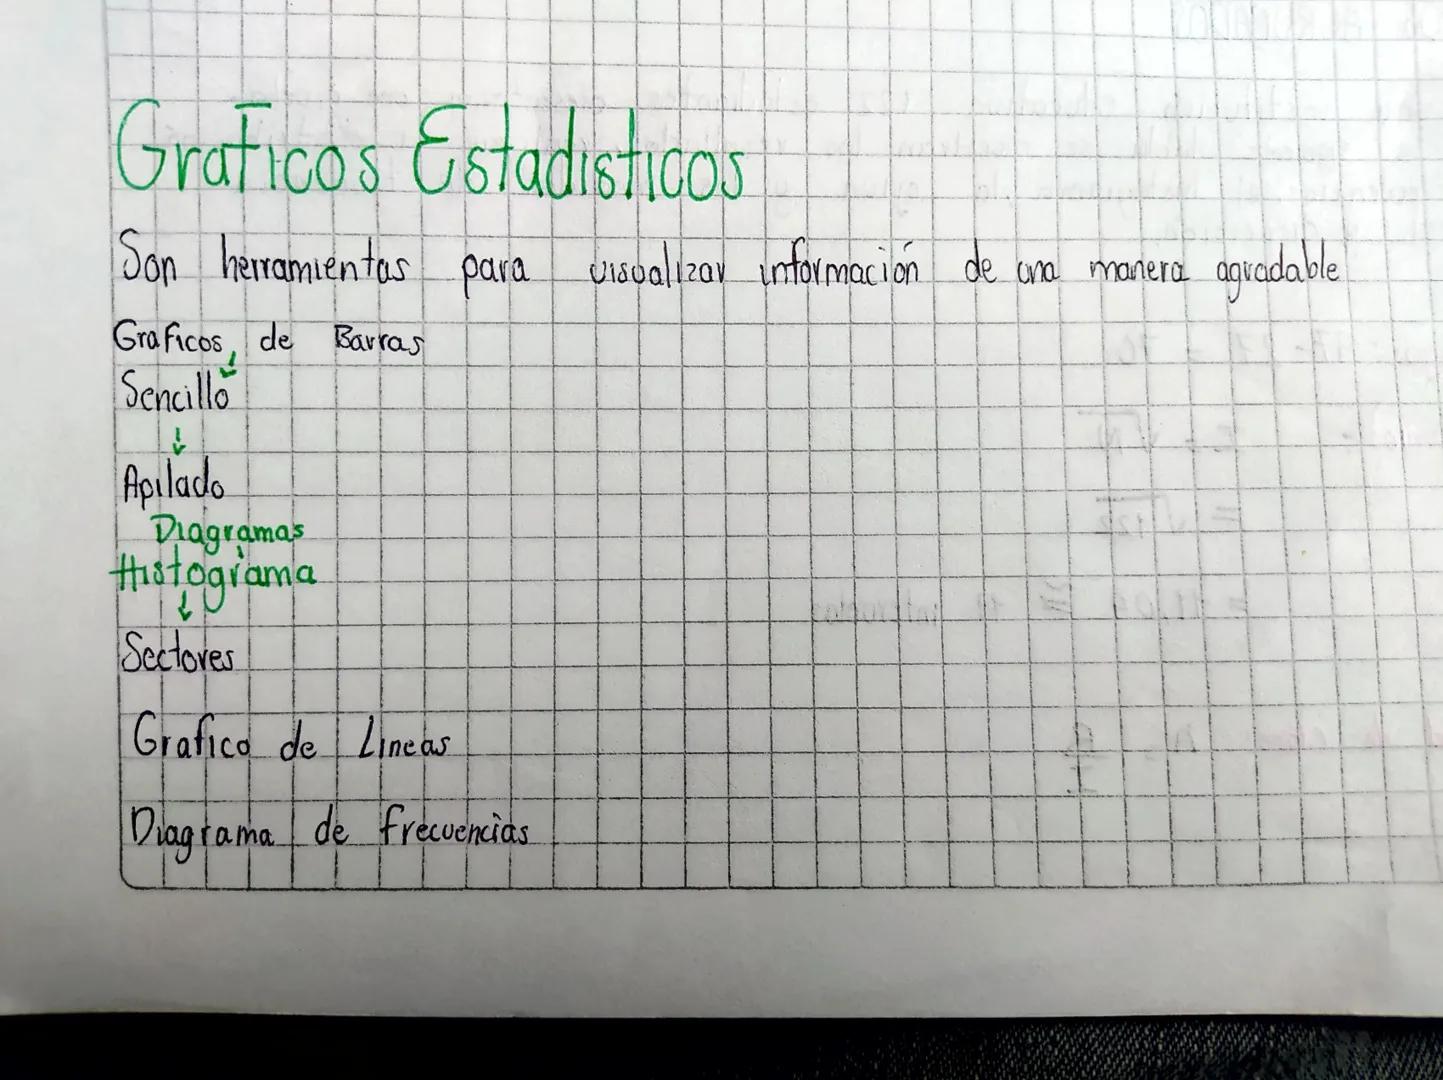 Graficos Estadisticos
Son herramientas para visualizar información de una manera agradable
Graficos de Barras
Sencillo
Apilado
Diagramas
Histograma
Sectores
Grafico de Lineas
Diagrama de frecuencias